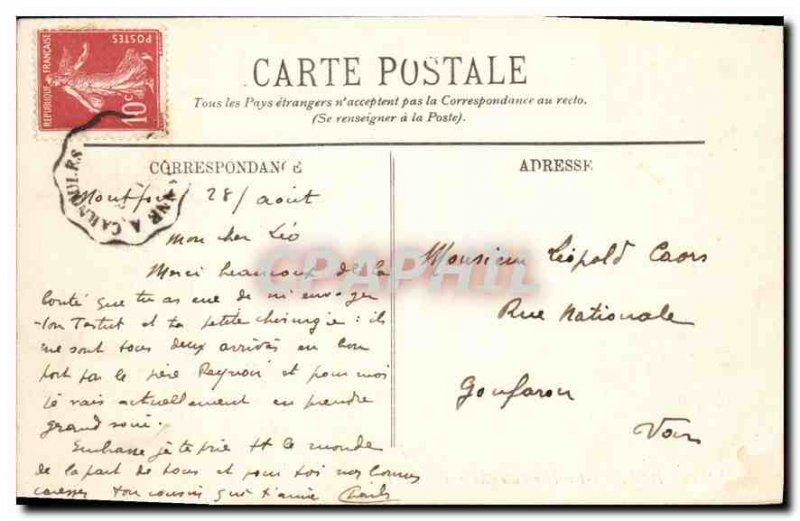 REPUBLIQUE FRANÇAISE
POSTES
10c
CARNOULES
CARTE POSTALE
Tous les Pays étrangers n'acceptent pas la Correspondance au recto.
(Se renseigner à la Poste).
CORRESPONDANCE
ADRESSE
28/ août
Mon cher Léo
Merci beaucoup de la
bonté que tu as eue de m'envoyer
ton Testut et ta petite chirurgie : ils
me sont tous deux arrivés en bon
port par le père et pour moi
je vais actuellement en prendre
grand soin.
Embrasse je te prie tt le monde
de la part de tous et pour toi nos bonnes
caresses ton cousin qui t'aime Charles
Monsieur Léopold Caors
Rue Nationale
Gonfaron
Var
CPAPHIL